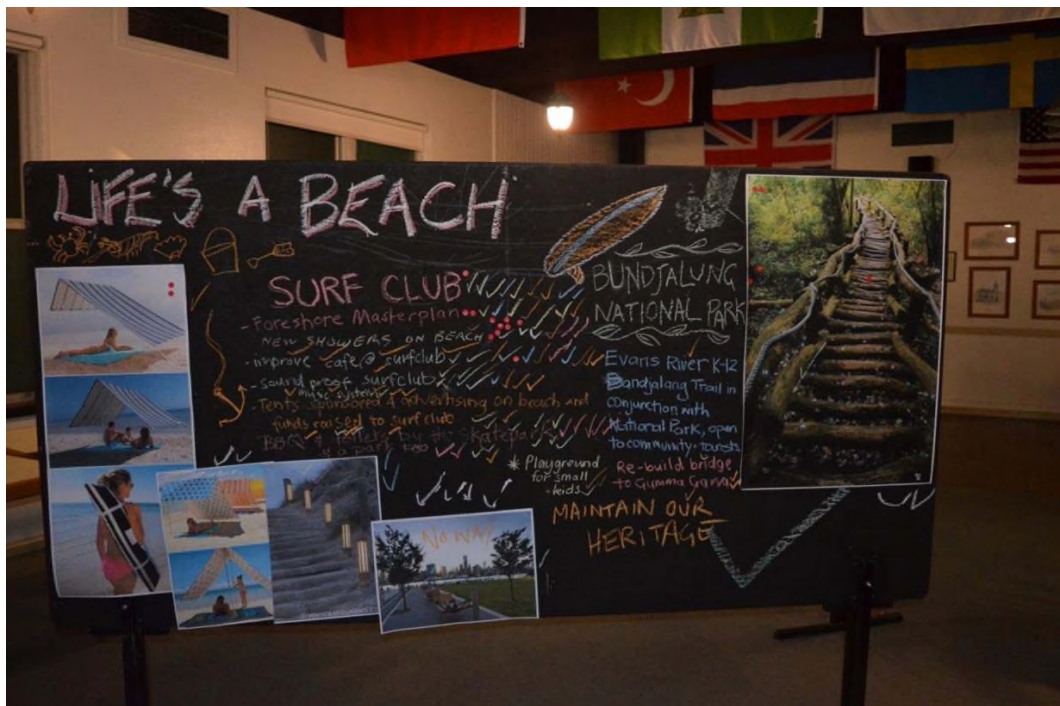 LIFE'S A BEACH
SURF CLUB
- Foreshore Masterplan
NEW SHOWERS ON BEACH
- improve cafe @ surfclub
- sound proof surfclub
music system
- Tents sponsored + advertising on beach and
funds raised to surf club
BBQ + toilets by the skatepark
a park too
* Playground
for small
kids
BUNDJALUNG
NATIONAL PARK
Evans River K-12
Bandjalang Trail in
conjunction with
National Park, open
to community + tourists
Re-build bridge
to Gumma Garra
MAINTAIN OUR
HERITAGE
NO WAY